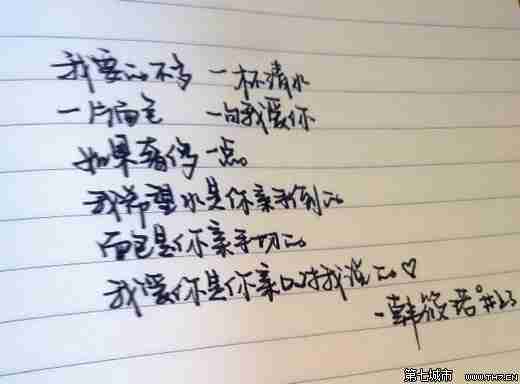 我要的不多 一杯清水
一片面包 一句我爱你
如果奢侈一点
我希望水是你亲手倒的
面包是你亲手切的
我爱你是你亲口对我说的♡
第七城市
www.TH7.CN